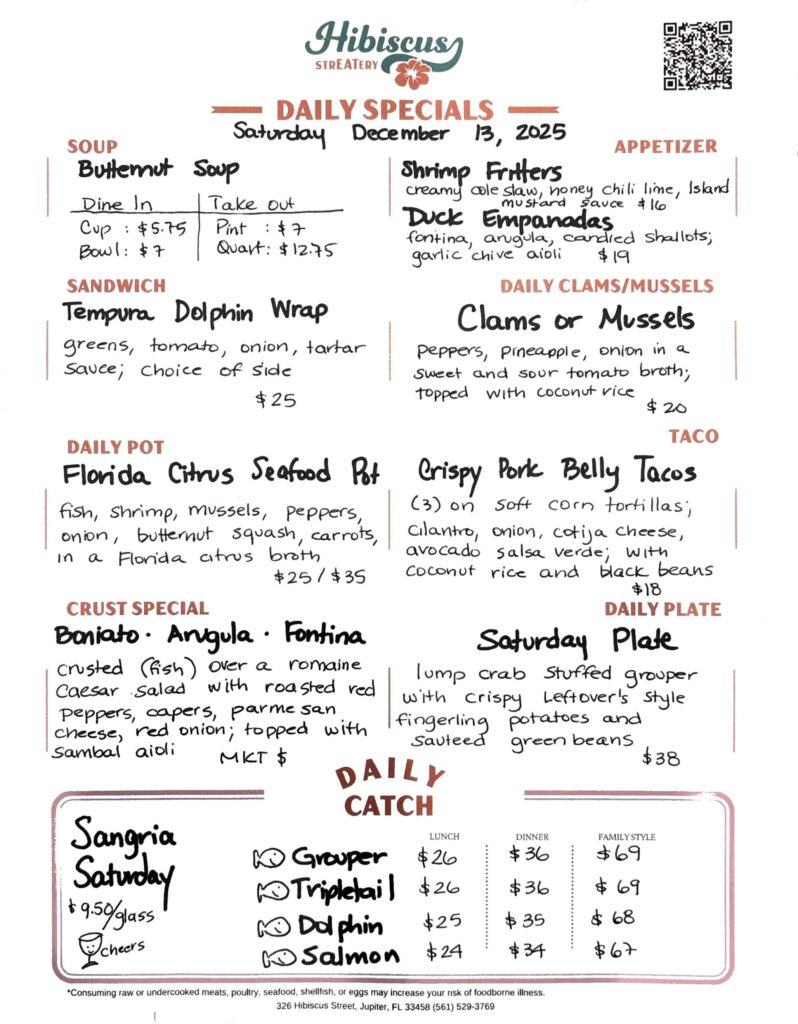 Hibiscus
STREATERY
DAILY SPECIALS
Saturday December 13, 2025
SOUP
Butternut Soup
Dine In Take out
Cup : $5.75 Pint : $7
Bowl: $7 Quart: $12.75
APPETIZER
Shrimp Fritters
creamy cole slaw, honey chili lime, Island
mustard sauce $16
Duck Empanadas
fontina, arugula, candied shallots;
garlic chive aioli $19
SANDWICH
Tempura Dolphin Wrap
greens, tomato, onion, tartar
sauce; choice of side
$25
DAILY CLAMS/MUSSELS
Clams or Mussels
peppers, pineapple, onion in a
sweet and sour tomato broth;
topped with coconut rice
$20
DAILY POT
Florida Citrus Seafood Pot
fish, shrimp, mussels, peppers,
onion, butternut squash, carrots,
in a Florida citrus broth
$25/$35
TACO
Crispy Pork Belly Tacos
(3) on soft corn tortillas;
cilantro, onion, cotija cheese,
avocado salsa verde; with
coconut rice and black beans
$18
CRUST SPECIAL
Boniato · Arugula · Fontina
crusted (fish) over a romaine
Caesar salad with roasted red
peppers, capers, parmesan
cheese, red onion; topped with
Sambal aioli MKT $
DAILY PLATE
Saturday Plate
lump crab stuffed grouper
with crispy Leftover's style
fingerling potatoes and
sauteed green beans
$38
DAILY
CATCH
Sangria
Saturday
$9.50/glass
cheers
LUNCH DINNER FAMILY STYLE
Grouper $26 $36 $69
Tripletail $26 $36 $69
Dolphin $25 $35 $68
Salmon $24 $34 $67
*Consuming raw or undercooked meats, poultry, seafood, shellfish, or eggs may increase your risk of foodborne illness.
326 Hibiscus Street, Jupiter, FL 33458 (561) 529-3769